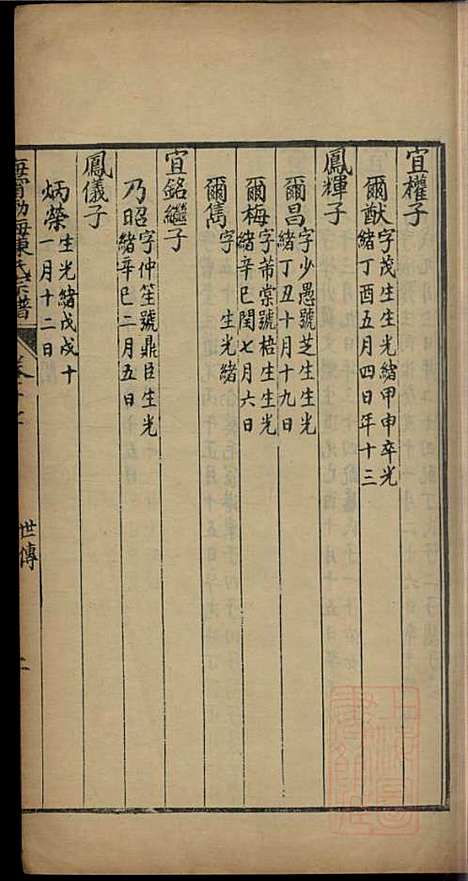 宜權子
爾猷字茂生生光緒甲申卒光
緒丁酉五月四日年十三
鳳輝子
爾昌字少愚號芝生生光
緒丁丑十月十九日
爾梅字芾棠號梧生生光
緒辛巳閏七月六日
爾雋字 生光緒
宜銘繼子
乃昭字仲笙號鼎臣生光
緒辛巳二月五日
鳳儀子
炳榮生光緒戊戌十
一月十二日
氏宗譜
世傳